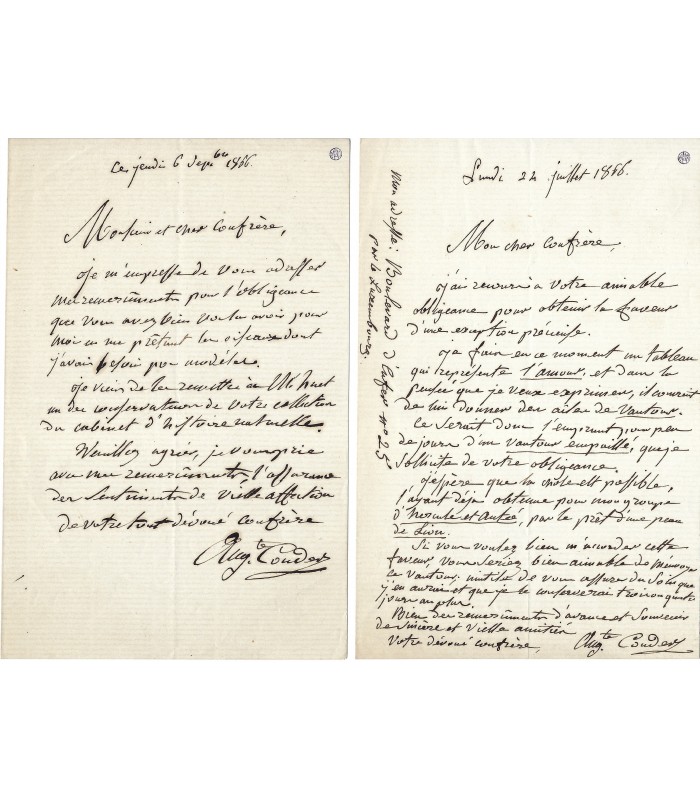 Ce jeudi 6 Sepbre 1866.
Monsieur et cher Confrère,
Je m'empresse de vous adresser
mes remerciments pour l'obligeance
que vous avez bien voulu avoir pour
moi en me prêtant les oiseaux dont
j'avais besoin pour modèles.
Je viens de les remettre à Mr huet
un des conservateurs de votre collection
du cabinet d'histoire naturelle.
Veuillez agréer, je vous prie
avec mes remerciments, l'assurance
des Sentiments de vieille affection
de votre tout dévoué confrère
Aug.te Couder
Lundi 22 juillet 1866.
Mon adresse: Boulevard d'Enfer no 25
par le Luxembourg.
Mon cher Confrère,
J'ai recours à votre aimable
obligeance pour obtenir la faveur
d'une exception précieuse.
Je fais en ce moment un tableau
qui représente l'amour, et dans la
pensée que je veux exprimer, il convient
de lui donner des ailes de Vautour.
Ce Serait donc l'emprunt pour peu
de jours d'un Vautour empaillé, que je
Sollicite de votre obligeance.
J'espère que la chose est possible,
l'ayant déjà obtenue pour mon groupe
d'hercule et Antée, par le prêt d'une peau
de Lion.
Si vous voulez bien m'accorder cette
faveur, vous Seriez bien aimable de m'envoyer
ce Vautour. inutile de vous assurer du Soin que
j'en aurai et que je le conserverai trois ou quatre
jours au plus.
Bien des remerciments d'avance et Souvenir
de Sincère et vieille amitié
Votre dévoué confrère,
Aug.te Couder